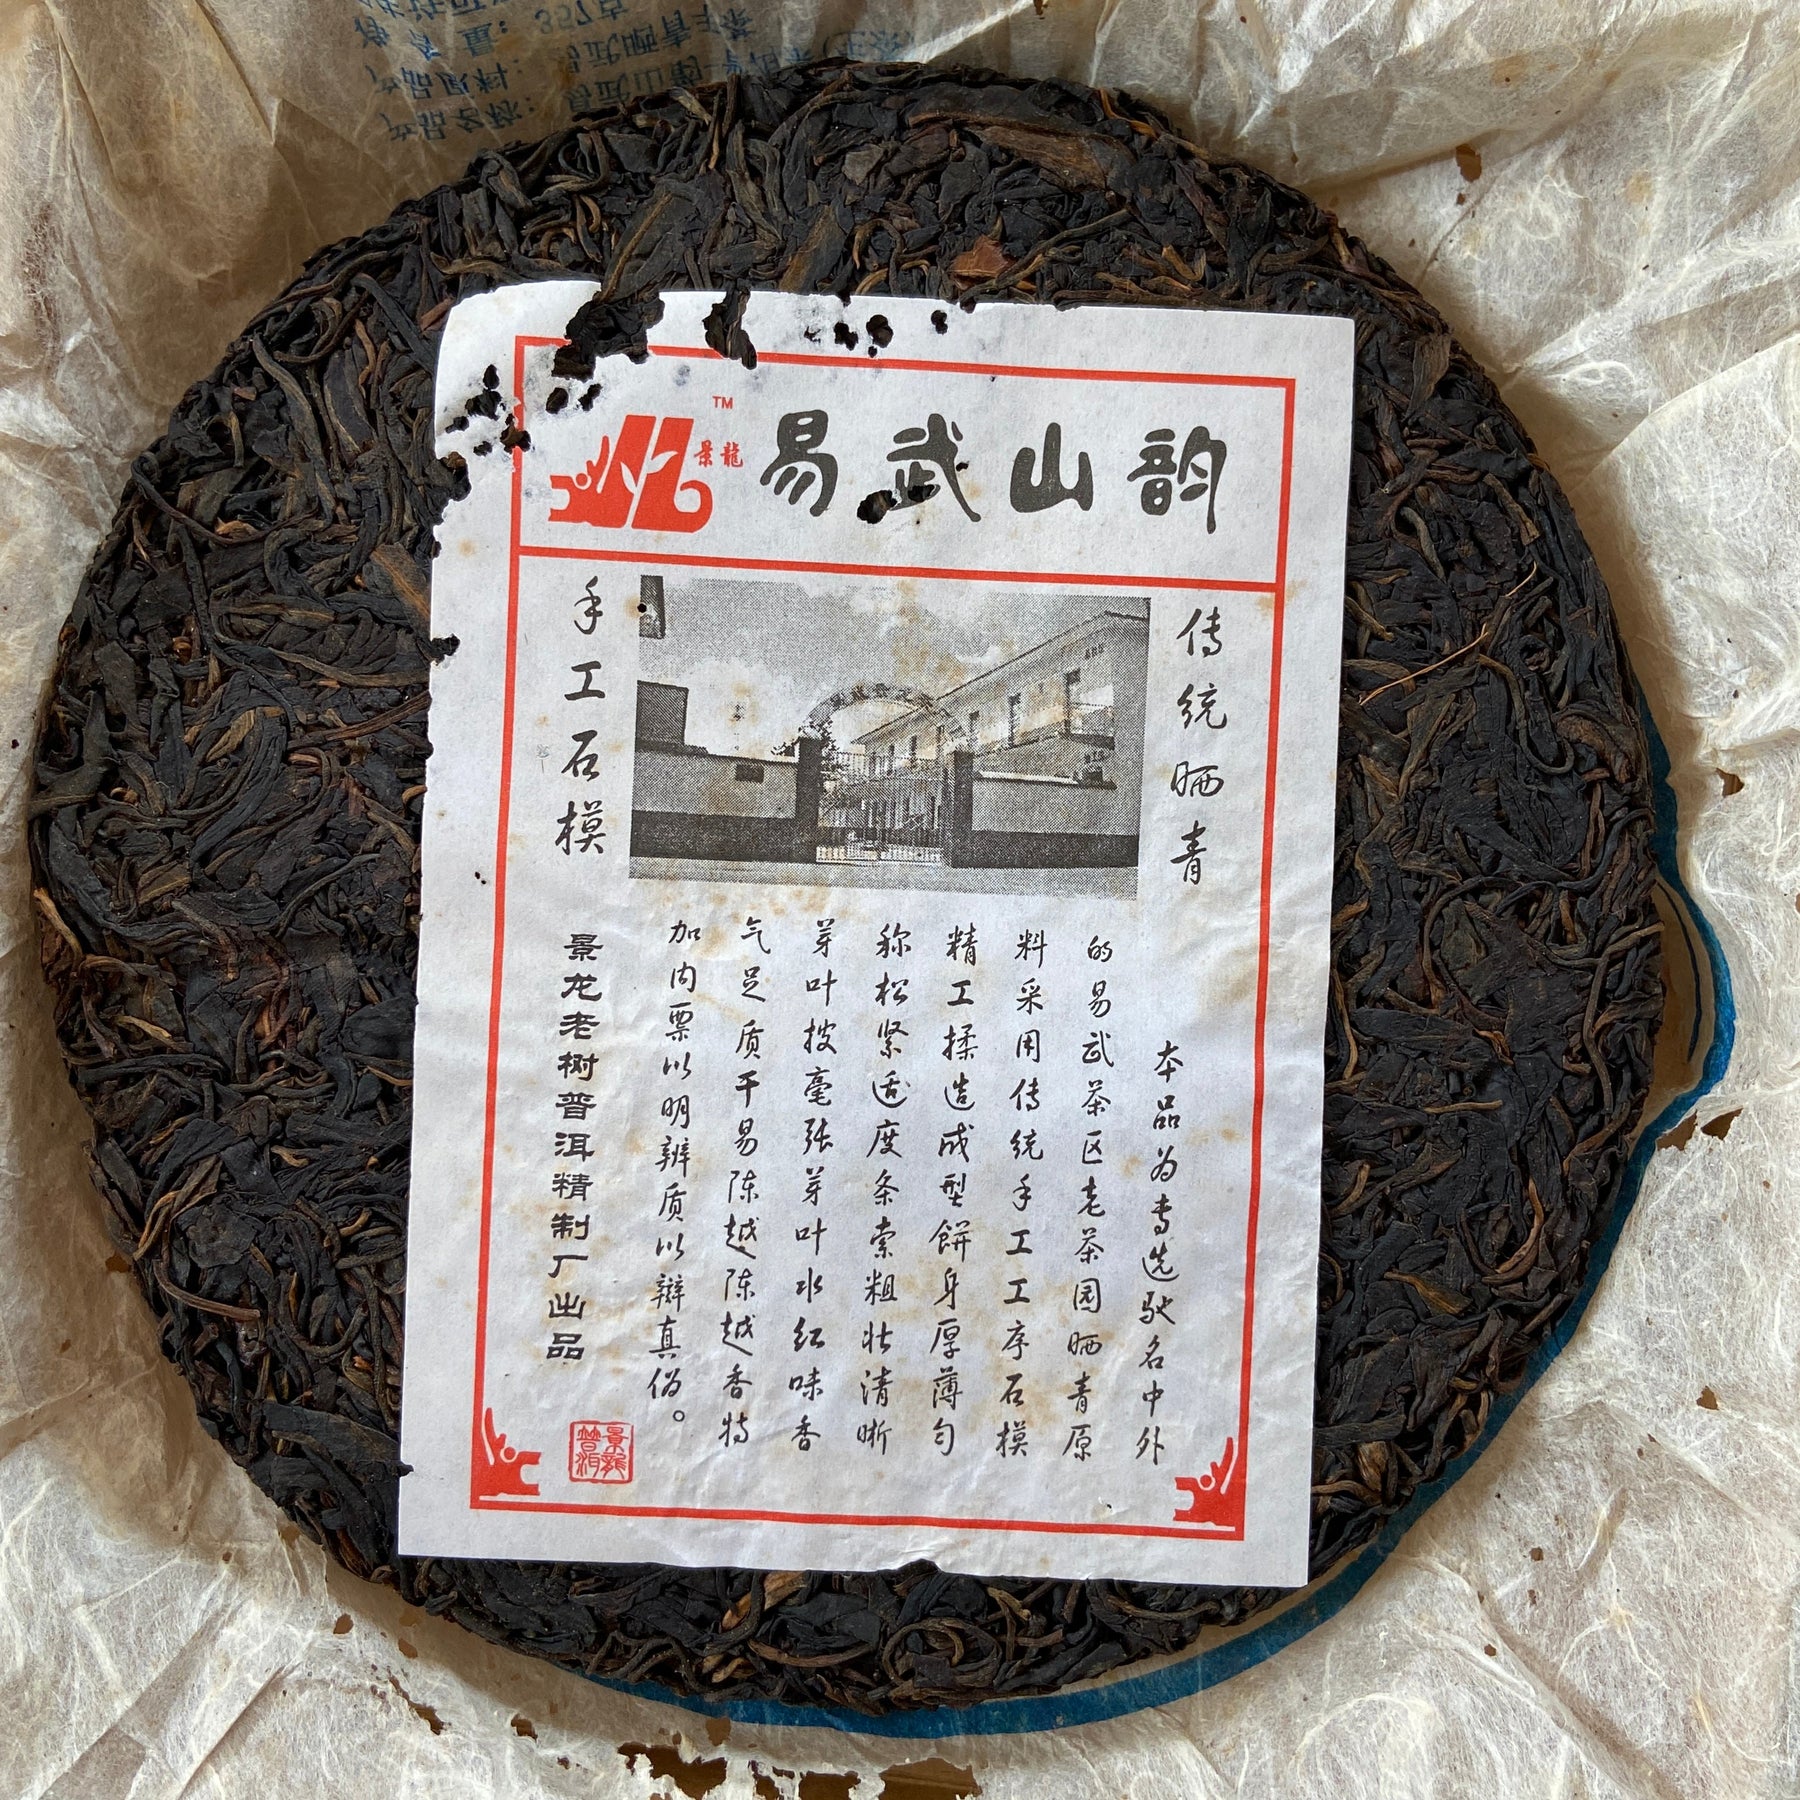 净含量：357克
产品原料：易武晒青毛茶
产品名称：易武山韵
TM
景龍
易武山韵
传统晒青
手工石模
本品为专选驰名中外
的易武茶区老茶园晒青原
料采用传统手工工序石模
精工揉造成型餅身厚薄匀
称松紧适度条索粗壮清晰
芽叶披毫张芽叶水红味香
气足质干易陈越陈越香特
加内票以明辨质以辩真伪。
景龙老树普洱精制厂出品
景龍
普洱